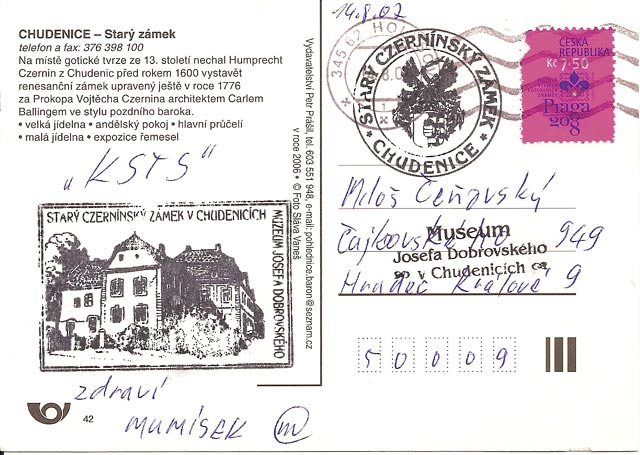 CHUDENICE – Starý zámek
telefon a fax: 376 398 100
Na místě gotické tvrze ze 13. století nechal Humprecht
Czernin z Chudenic před rokem 1600 vystavět
renesanční zámek upravený ještě v roce 1776
za Prokopa Vojtěcha Czernina architektem Carlem
Ballingem ve stylu pozdního baroka.
• velká jídelna • andělský pokoj • hlavní průčelí
• malá jídelna • expozice řemesel
„KSTS“
STARÝ CZERNÍNSKÝ ZÁMEK V CHUDENICÍCH
MUZEUM JOSEFA DOBROVSKÉHO
zdraví
MUMÍSEK m
42
Vydavatelství Petr Prášil, tel. 603 551 948, e-mail: pohlednice.baron@seznam.cz
v roce 2006 • © Foto Sláva Vaneš
14.8.07
345 62 HO
STARÝ CZERNÍNSKÝ ZÁMEK
* CHUDENICE *
ČESKÁ
REPUBLIKA
Kč 7,50
Praga
2008
Miloš
949
Museum
Josefa Dobrovského
v Chudenicích
Hradec Králové 9
50009